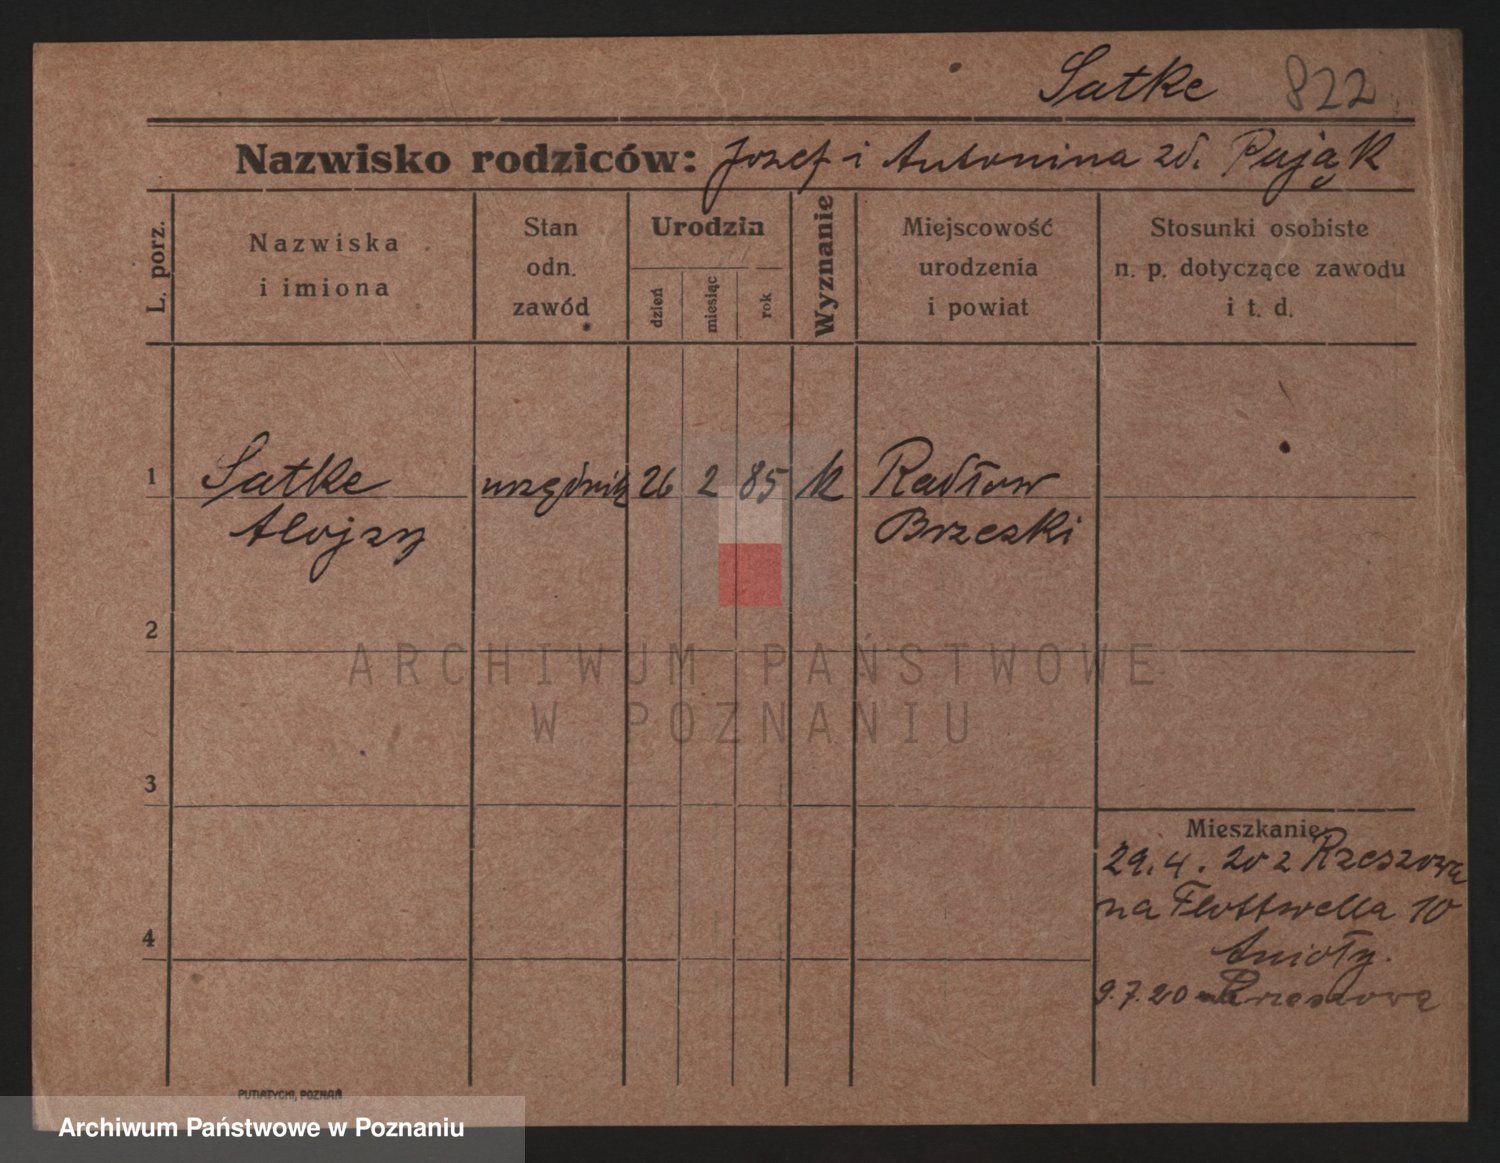 Satke 822
Nazwisko rodziców: Jozef i Antonina zd. Pająk
L. porz.
Nazwiska
i imiona
Stan
odn.
zawód
Urodzin
dzień
miesiąc
rok
Wyznanie
Miejscowość
urodzenia
i powiat
Stosunki osobiste
n. p. dotyczące zawodu
i t. d.
1 Satke urzędnik 26 2 85 k Radłow
Alojzy Brzeski
2
ARCHIWUM PAŃSTWOWE
W POZNANIU
3
Mieszkanie:
29.4.20 z Rzeszowa
na Flottwella 10
4
Anioły.
9.7.20 Rzeszowa
PUTIATYCKI, POZNAŃ
Archiwum Państwowe w Poznaniu